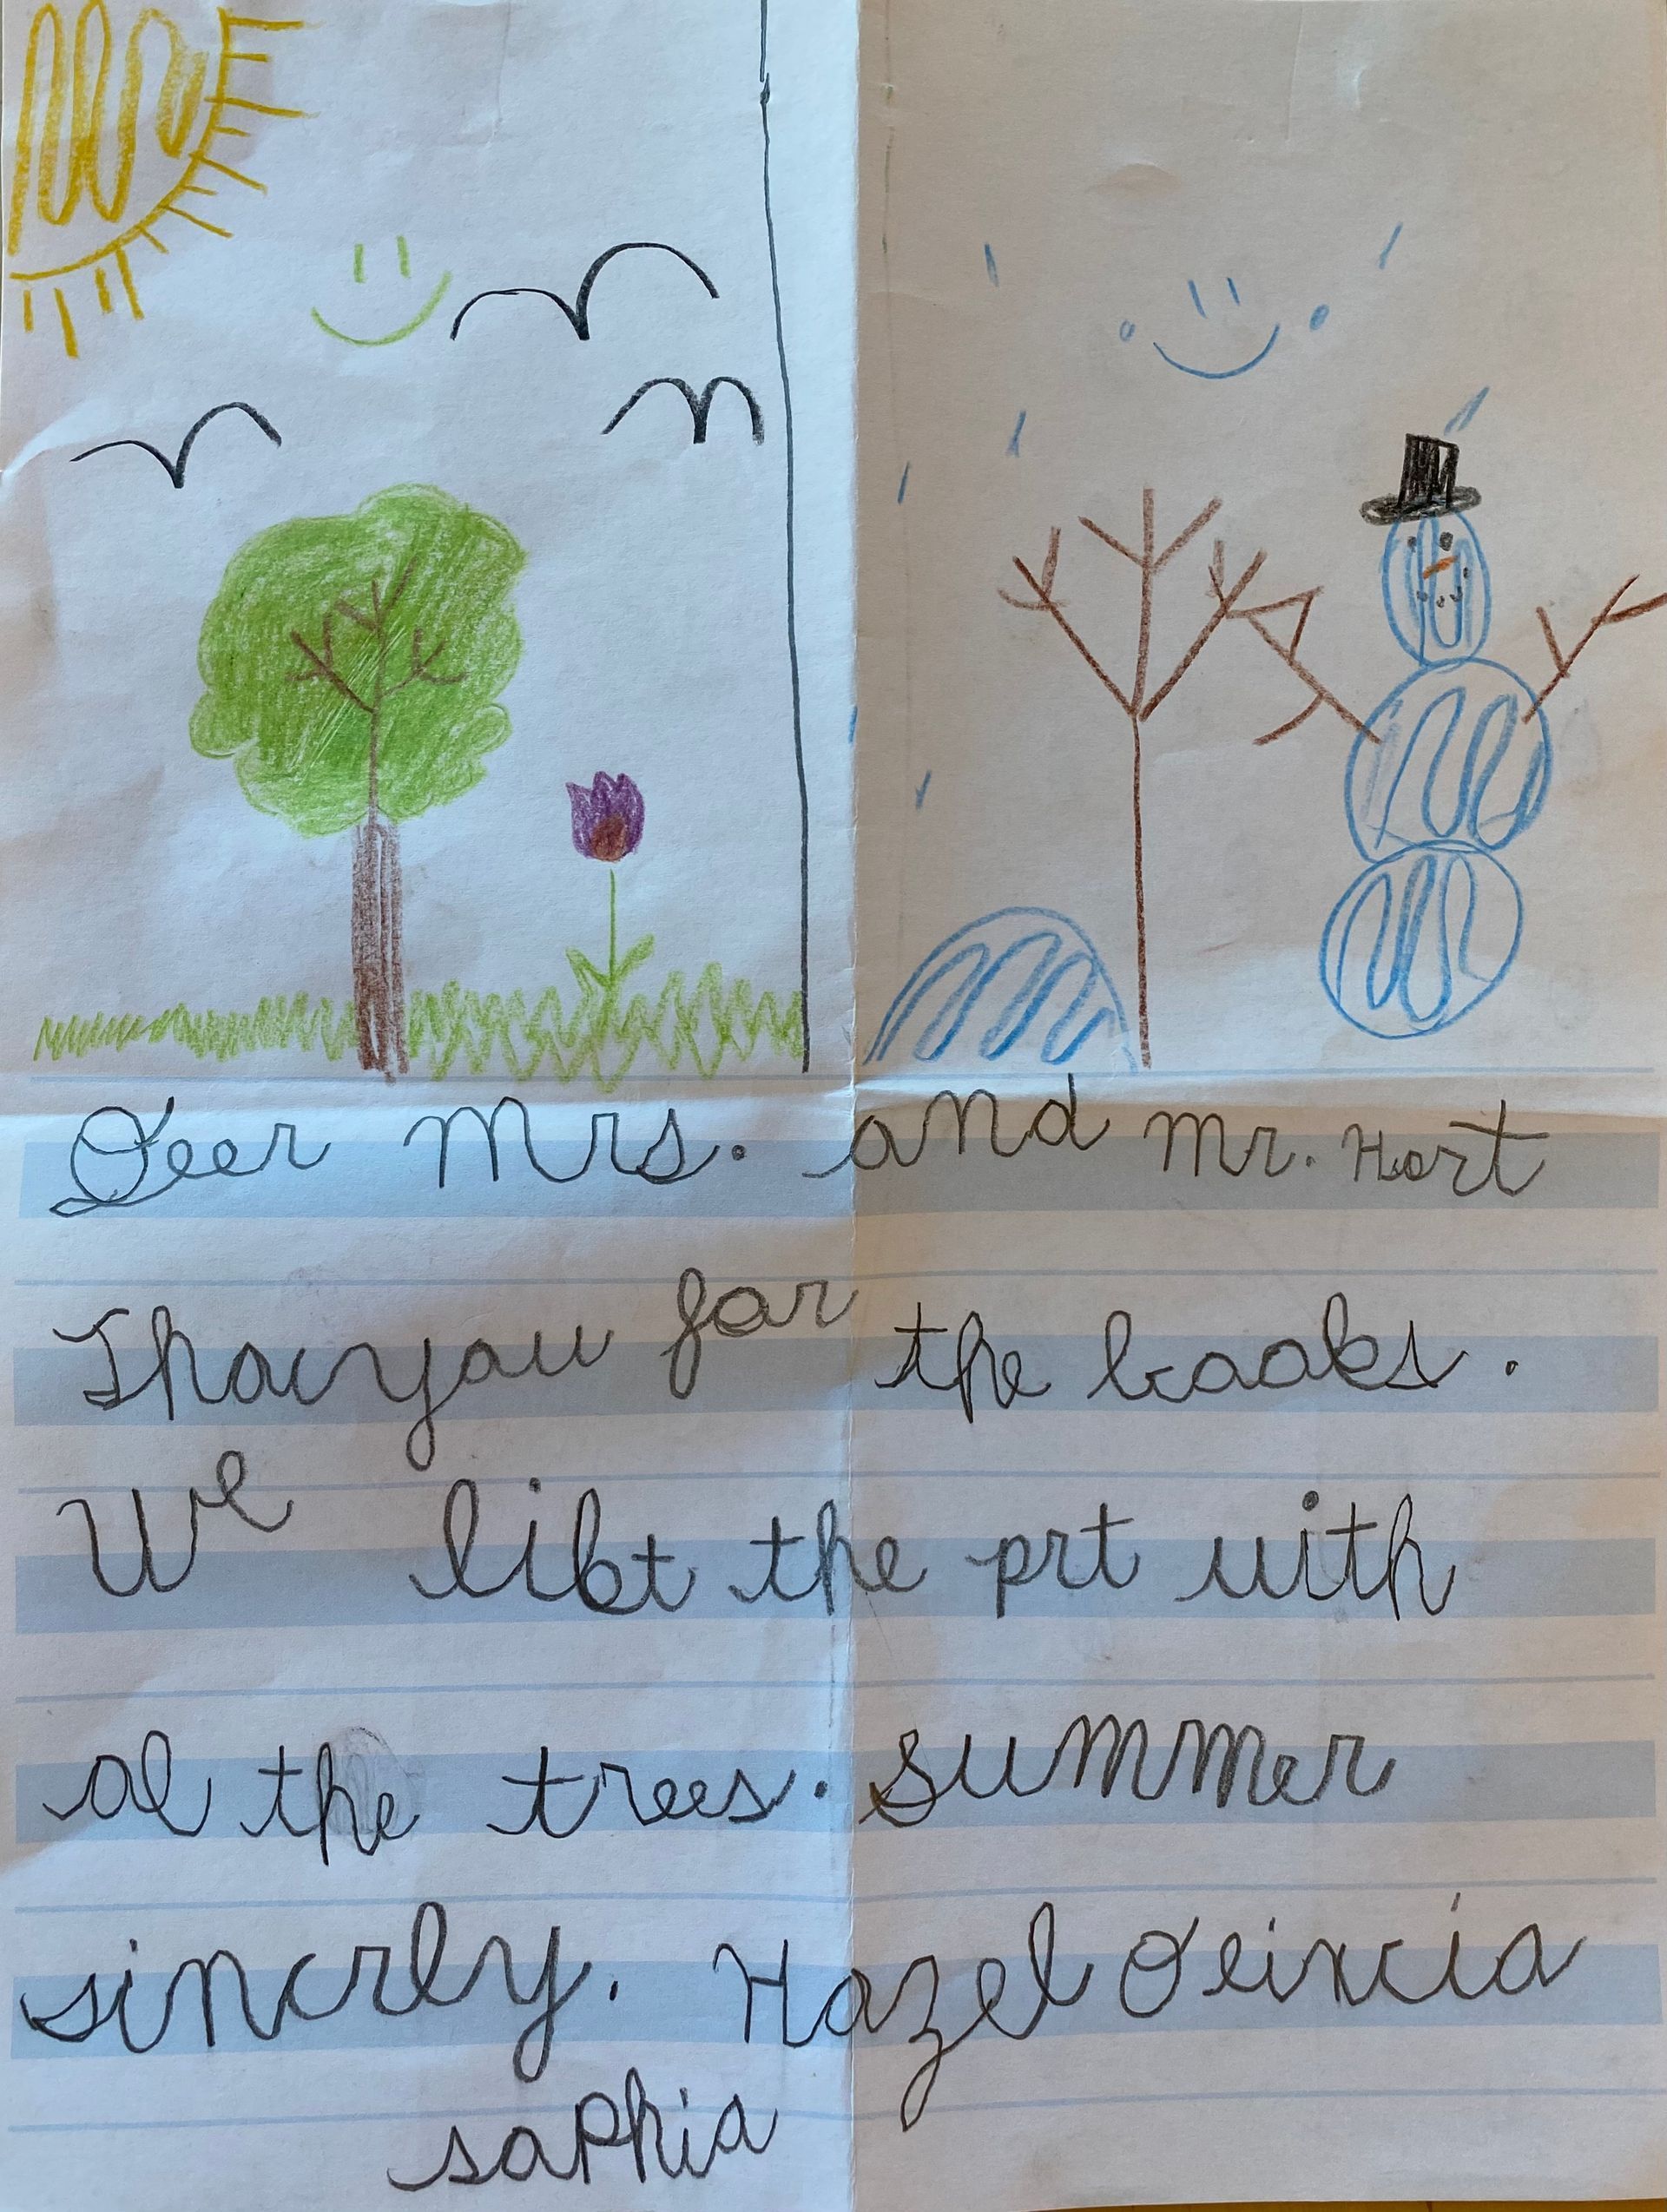 Deer Mrs. and Mr. Hart
Thacyou for the books.
We likt the prt with
al the trees. summer
sincrly. Hazel
sophia